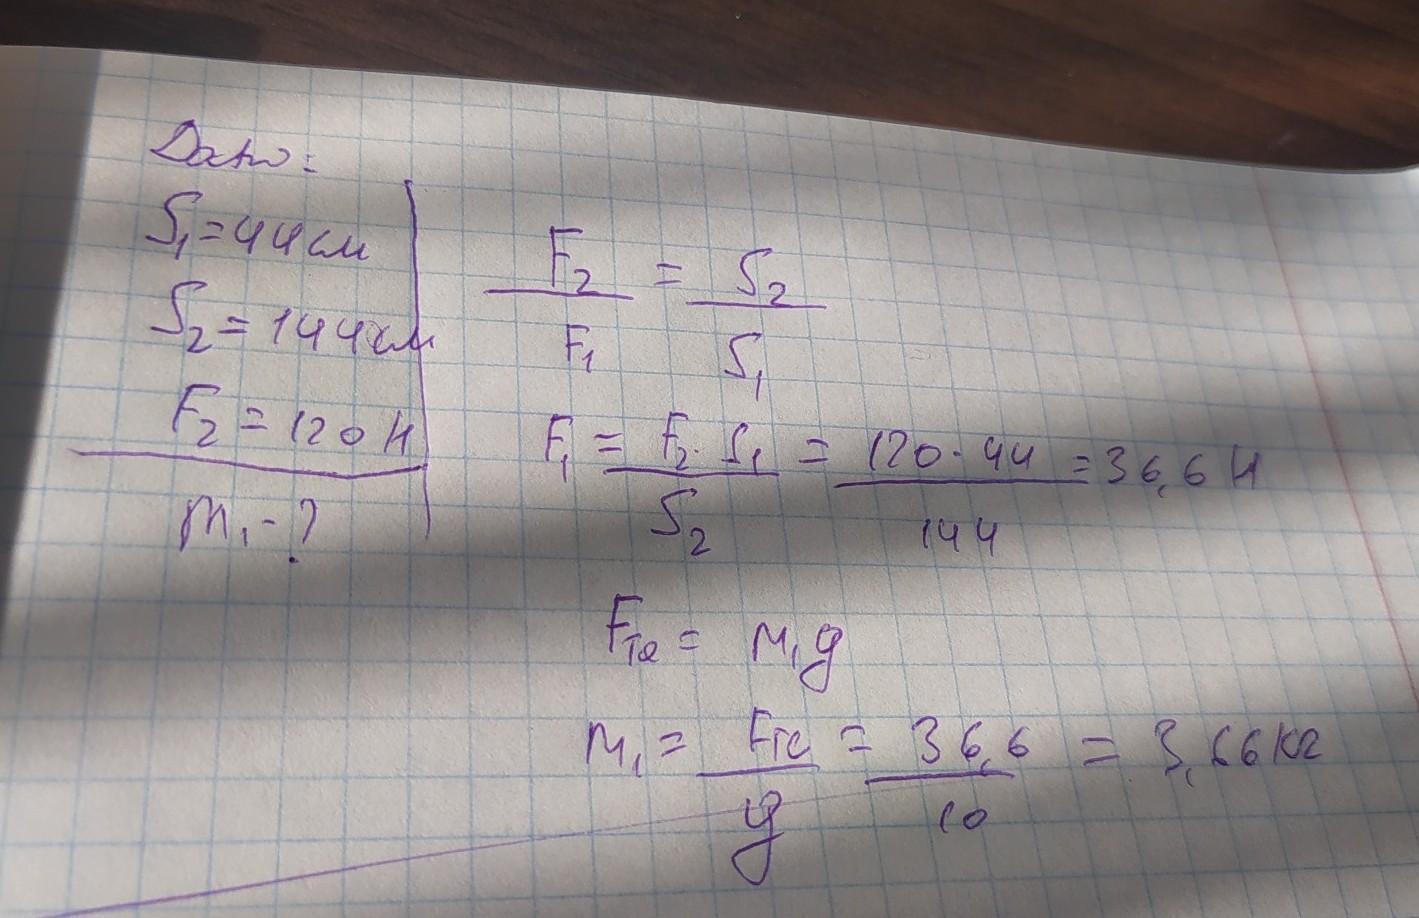 Дано:
S₁=44см
S₂=144см
F₂=120Н
m₁-?
F₂/F₁ = S₂/S₁
F₁ = F₂·S₁/S₂ = 120·44/144 = 36,6 Н
Fтя = m₁g
m₁ = Fтя/g = 36,6/10 = 3,66кг